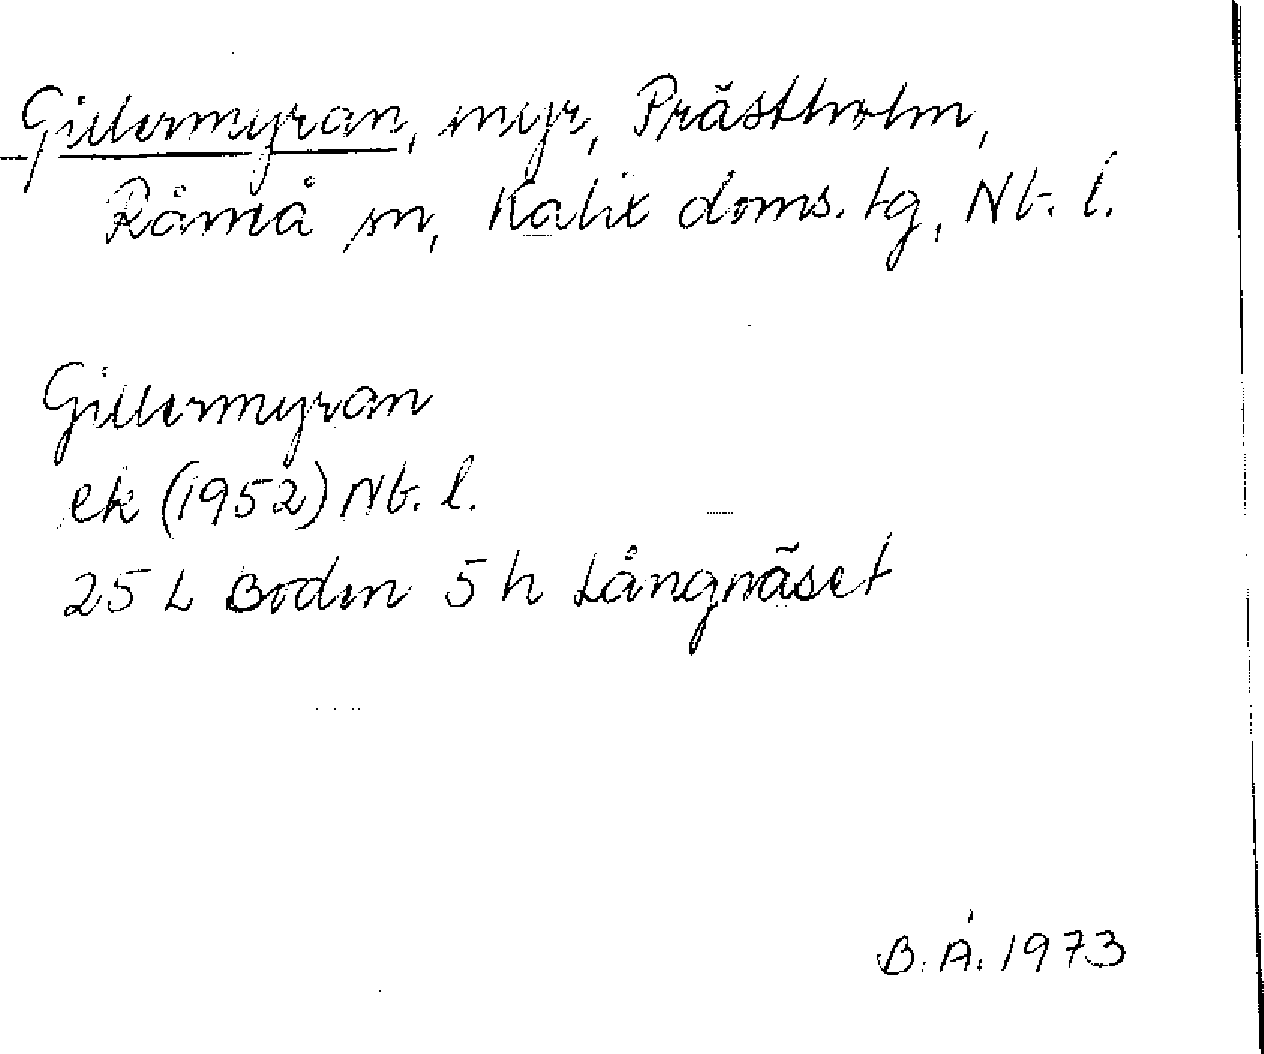 Gillermyran, myr, Prästholm,
Råneå sn, Kalix doms. tg, Nb. l.
Gillermyran
ek (1952) Nb. l.
25 L Boden 5 h Långnäset
B. Å. 1973